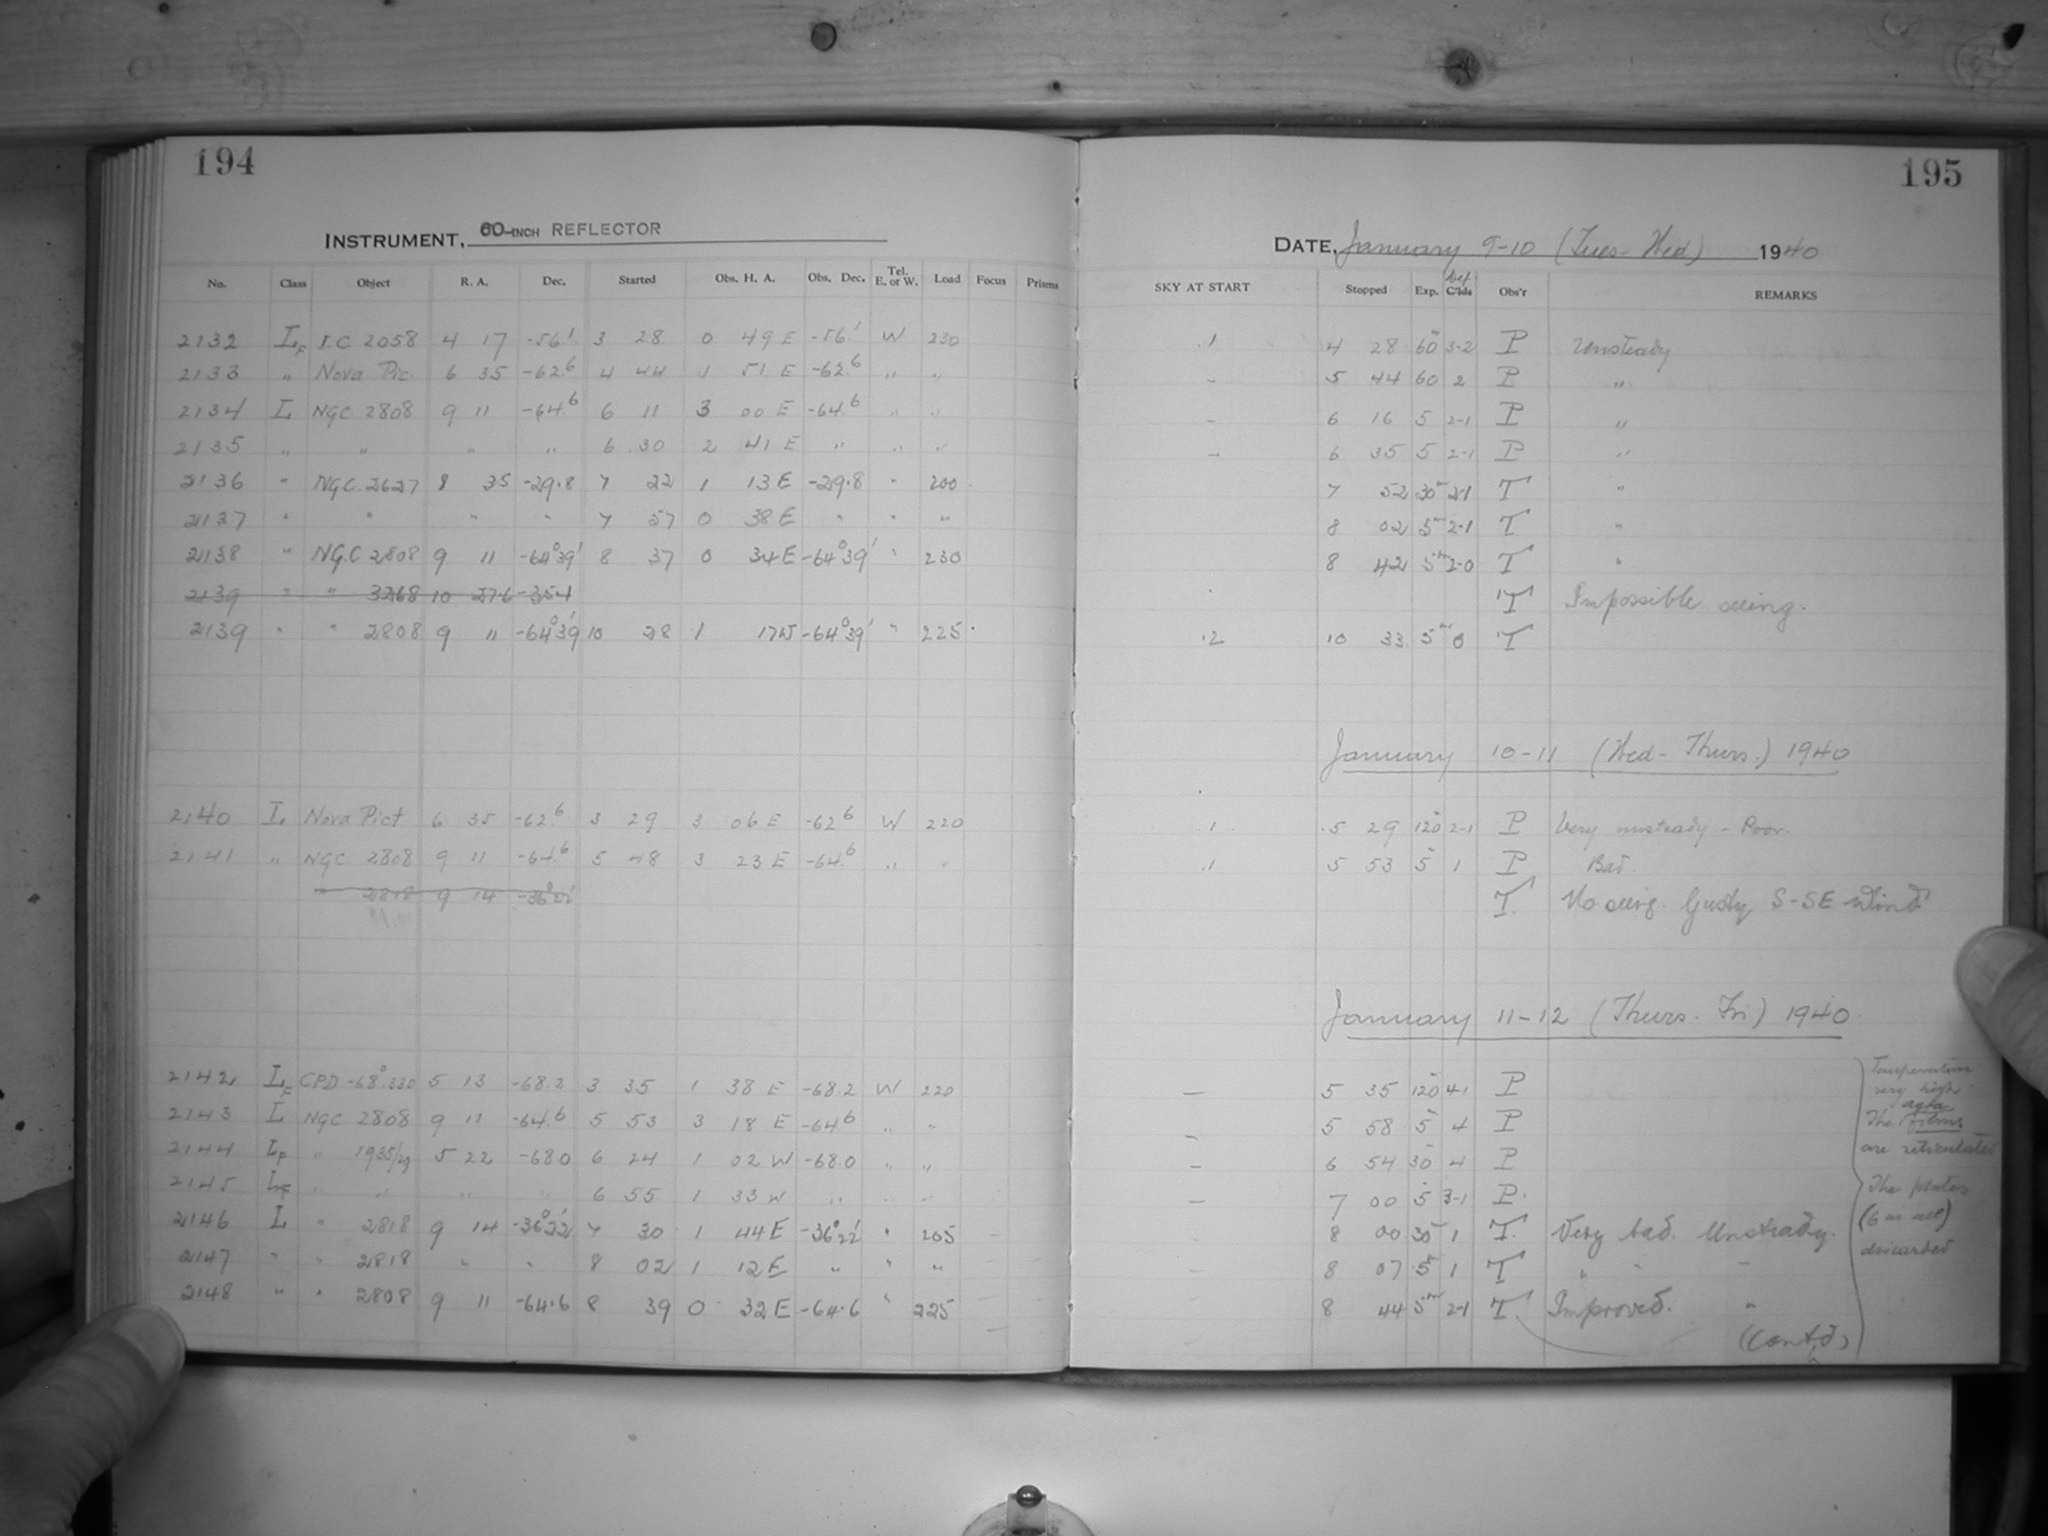 194
INSTRUMENT, 60-INCH REFLECTOR
No. Class Object R. A. Dec. Started Obs. H. A. Obs. Dec. Tel. E. or W. Load Focus Prisms
2132 LF I.C 2058 4 17 -56.1 3 28 0 49 E -56.1 W 230
2133 " Nova Pic. 6 35 -62.6 4 44 1 51 E -62.6 " "
2134 L NGC 2808 9 11 -64.6 6 11 3 00 E -64.6 " "
2135 " " " " 6 30 2 41 E " " "
2136 " NGC 2627 8 35 -29.8 7 22 1 13 E -29.8 " 200
2137 " " " " 7 57 0 38 E " " "
2138 " NGC 2808 9 11 -64°39' 8 37 0 34 E -64°39' " 230
2139 " " 3268 10 27.6 -35.1
2139 " " 2808 9 11 -64°39' 10 28 1 17 W -64°39' " 225
2140 L Nova Pict 6 35 -62.6 3 29 3 06 E -62.6 W 220
2141 " NGC 2808 9 11 -64.6 5 48 3 23 E -64.6 " "
" 2818 9 14 -36°22'
2142 LF CPD -68°.330 5 13 -68.2 3 35 1 38 E -68.2 W 220
2143 L NGC 2808 9 11 -64.6 5 53 3 18 E -64.6 " "
2144 LF " 1935/29 5 22 -68.0 6 24 1 02 W -68.0 " "
2145 LF " " " " 6 55 1 33 W " " "
2146 L " 2818 9 14 -36°22' 7 30 1 44 E -36°22' " 205
2147 " " 2818 " " 8 02 1 12 E " " "
2148 " " 2808 9 11 -64.6 8 39 0 32 E -64.6 " 225
195
DATE, January 9-10 (Tues-Wed) 1940
SKY AT START Stopped Exp. Def C'lds Obs'r REMARKS
.1 4 28 60 3-2 P Unsteady
- 5 44 60 2 P "
- 6 16 5 2-1 P "
- 6 35 5 2-1 P "
7 52 30m 2-1 T "
8 02 5m 2-1 T "
8 42 5m 2-0 T "
T Impossible seeing.
.2 10 33 5m 0 T
January 10-11 (Wed-Thurs.) 1940
.1 5 29 120 2-1 P Very unsteady - Poor.
.1 5 53 5 1 P Bad.
T. No seeing. Gusty S-SE Wind
January 11-12 (Thurs-Fri) 1940
- 5 35 120 4-1 P
- 5 58 5 4 P
- 6 54 30 4 P
- 7 00 5 3-1 P.
8 00 30 1 T. Very bad. Unsteady.
8 07 5 1 T " " "
8 44 5m 2-1 T. Improved. "
(Cont'd)
Temperature
very high
agfa
The films
are reticulated
The plates
(6 in all)
discarded